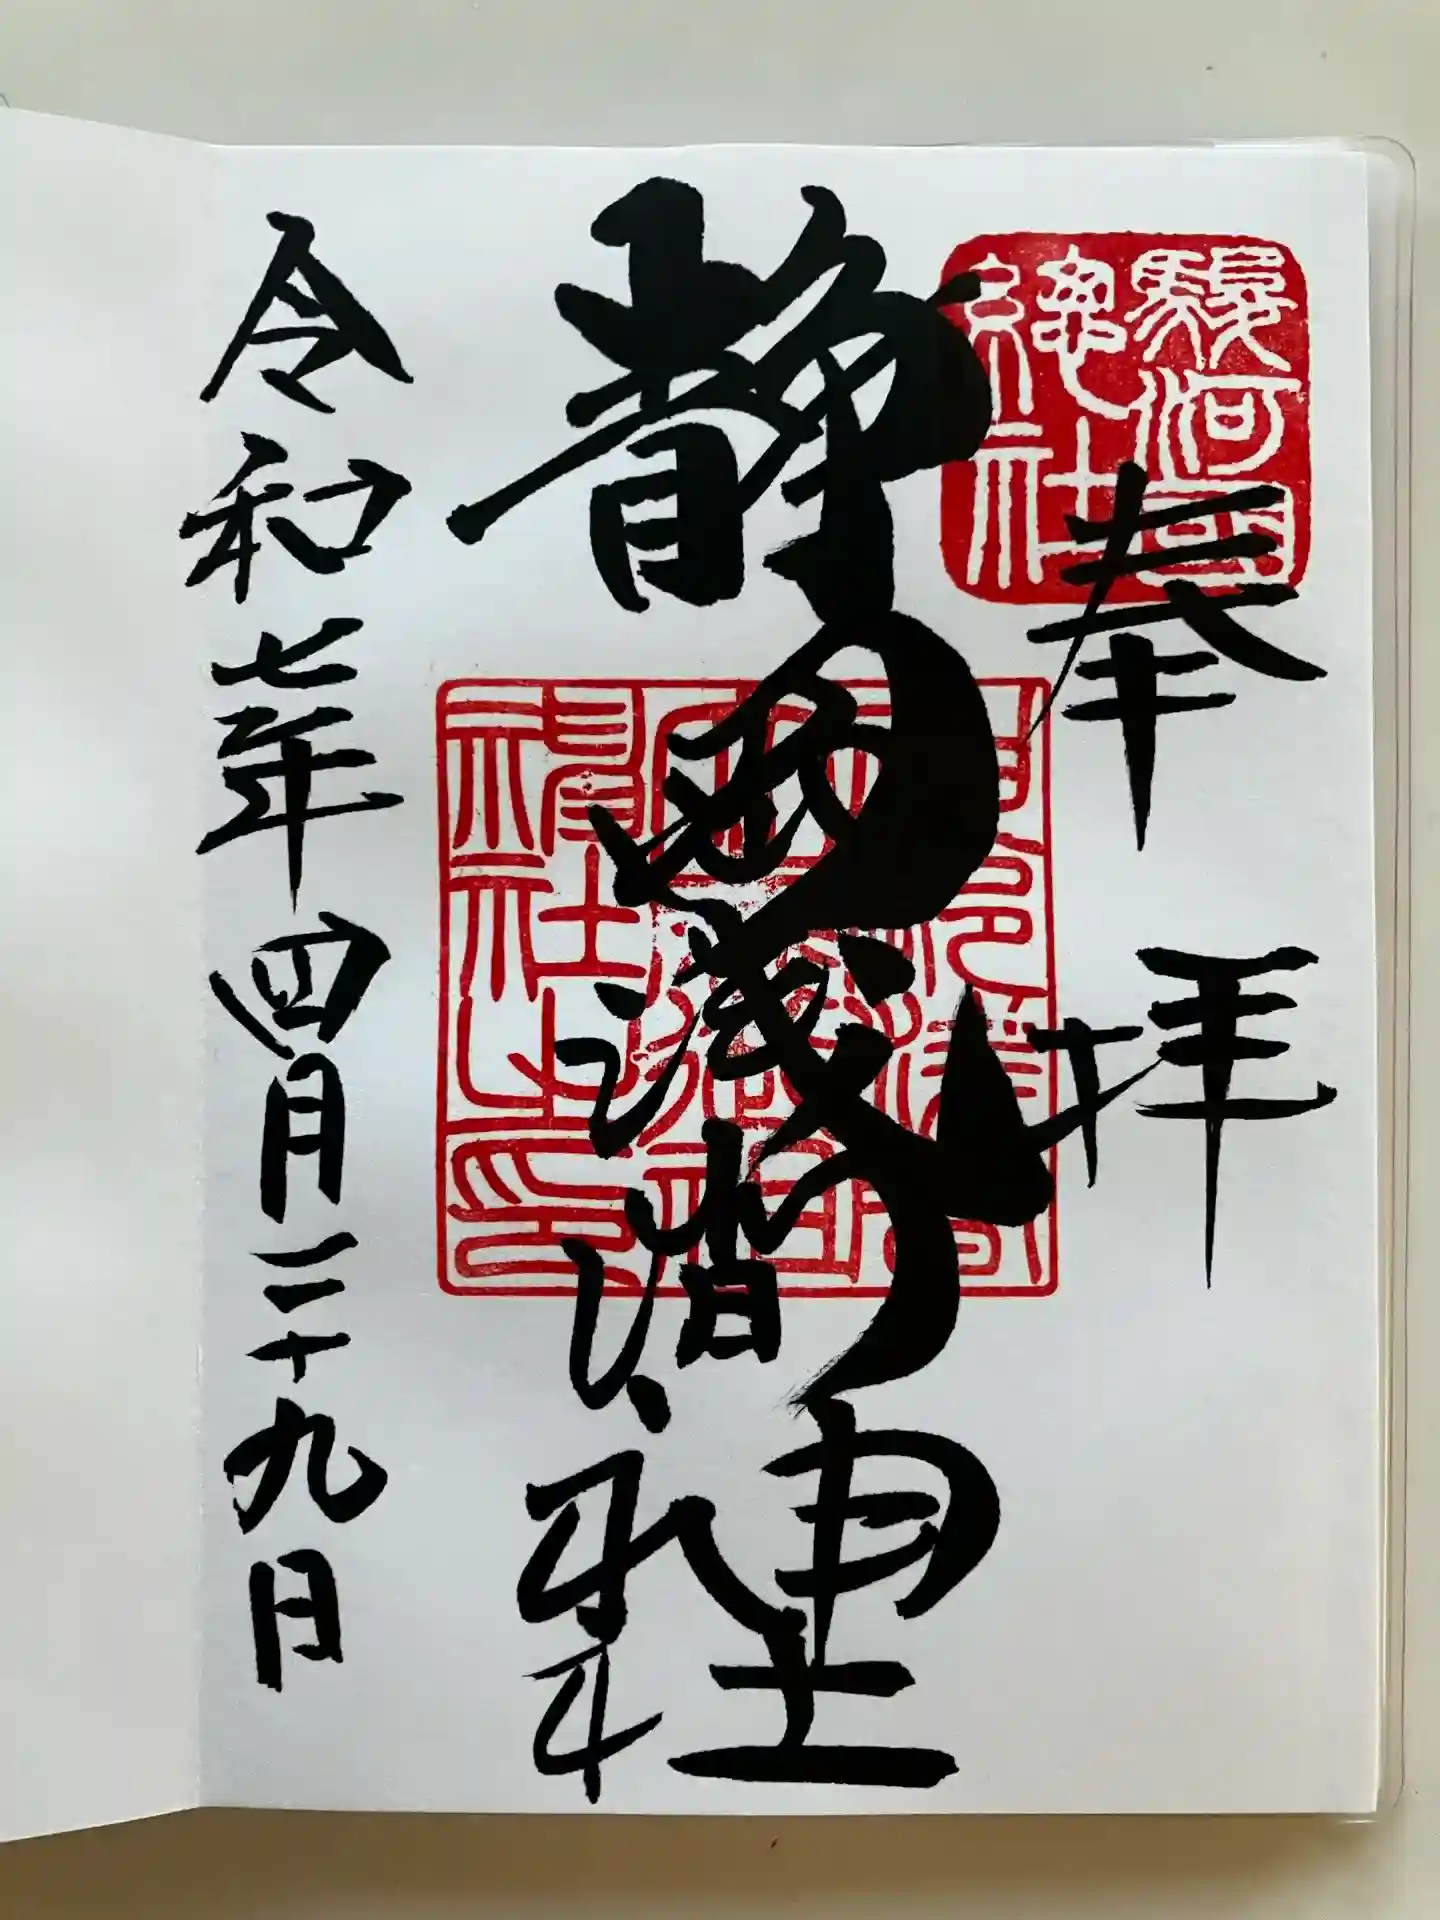 駿河國
總社
奉拝
静岡浅間神社
令和七年四月二十九日